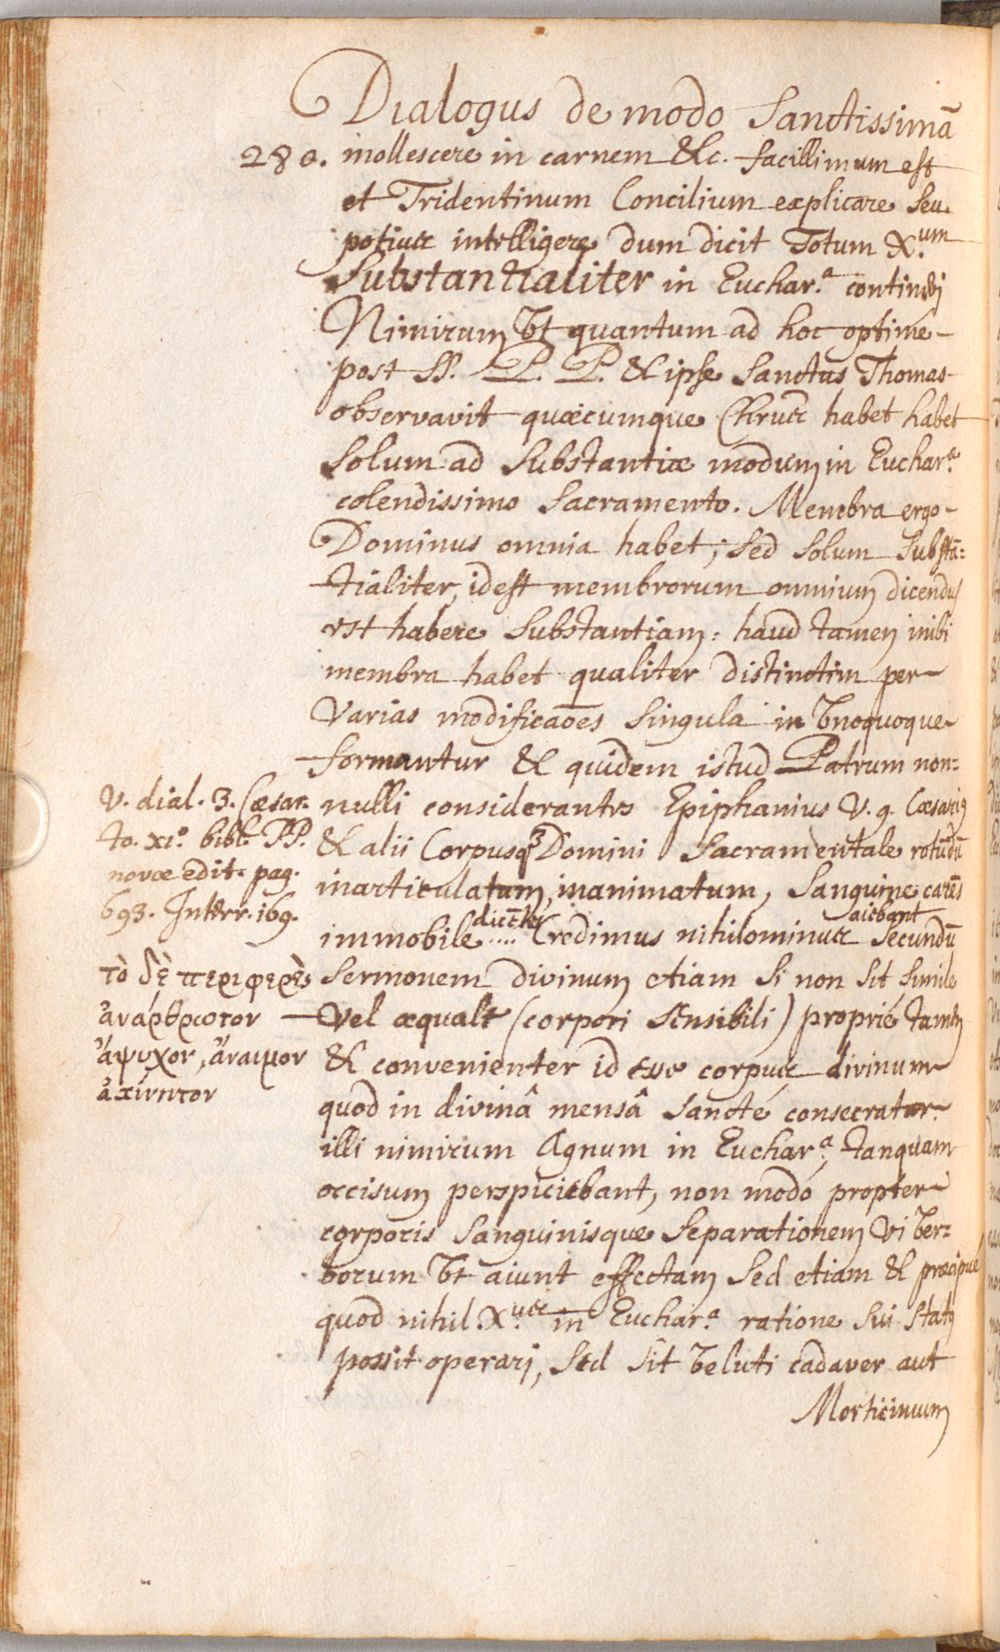 Dialogus de modo Sanctissimā
280. mollescere in carnem &c. facillimum est
et Tridentinum Concilium explicare seu
potius intelligere dum dicit Totum X.um
Substantialiter in Euchar.a contineri
Nimirum Vt quantum ad hoc optime
post SS. P. P. & ipse Sanctus Thomas
observavit quæcumque Chrus habet habet
solum ad Substantiæ modum in Euchar.a
colendissimo Sacramento. Membra ergo
Dominus omnia habet; sed solum substā=
tialiter, idest membrorum omnium dicendus
est habere Substantiam: haud tamen inibi
membra habet qualiter distinctim per
Varias modificaões singula in Vnoquoque
formantur & quidem istud Patrum non=
V. dial. 3. Cæsar.
to. XI.o bibl. PP.
novæ edit. pag.
693. Interr. 169.
τὸ δὲ περιφερὲς
ἀνάρθρωτον
ἄψυχον, ἄναιμον
ἀκίνητον
nulli considerantes Epiphanius V. g. Cæsarius
& alii Corpusq3 Domini Sacramentale rotūdū
inarticulatum, inanimatum, Sanguine carēs
immobile .... Credimus nihilominus aiebant secundū
Sermonem divinum etiam si non sit simile
Vel æquale (corpori sensibili) proprié tamen
& convenienter id esse corpus divinum
quod in divinâ mensâ sancté consecratur
illi nimirum Agnum in Euchar.a, tanquam
occisum perspiciebant, non modó propter
corporis Sanguinisque Separationem Vi Ver=
borum Vt aiunt effectam sed etiam & præcipue
quod nihil X.us in Euchar.a ratione sui status
possit operari, sed sit Veluti cadaver aut
Morticinum